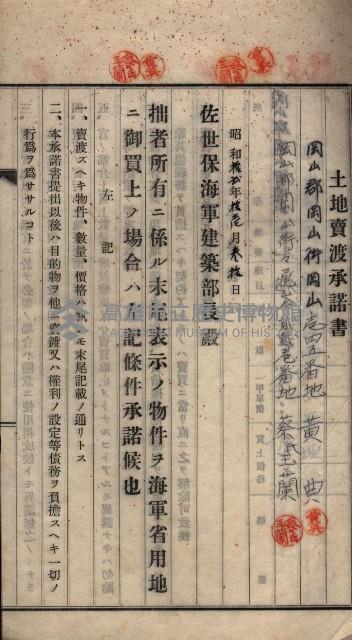 土地賣渡承諾書
岡山郡岡山街岡山志四五番地 黃典
岡山郡岡山街 番地 蔡氏玉蘭
昭和拾 年拾 月叁拾日
佐世保海軍建築部長殿
拙者所有ニ係ル末尾表示ノ物件ヲ海軍省用地
ニ御買上ノ場合ハ左記條件承諾候也
左記
一、賣渡スヘキ物件、數量、價格ハ 末尾記載ノ通リトス
二、本承諾書提出以後ハ目的物ヲ他ニ賣渡又ハ權利ノ設定等債務ヲ負擔スヘキ一切ノ
行爲ヲ爲ササルコト
高雄市立歷史博物館
MUSEUM OF HISTORY